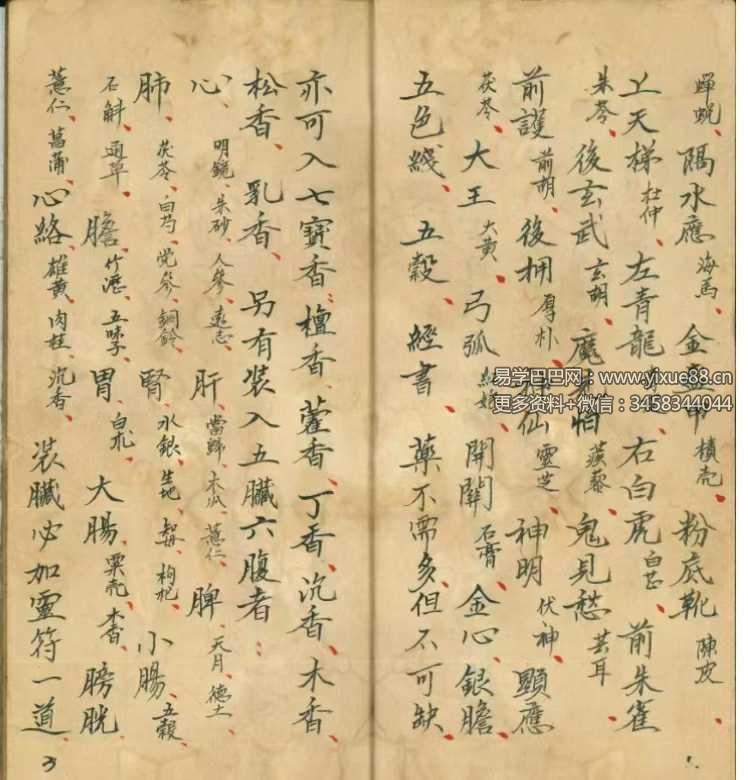 蟬蛻、隔水應海馬、金盔甲積壳、粉底靴陳皮、
上天梯杜仲、左青龍 右白虎白芷、前朱雀
朱苓、後玄武玄胡、魔見怕蒺藜、鬼見愁芸耳、
前護前胡、後拥厚朴、神仙靈芝、神明伏神、顯應
茯苓、大王大黄、弓弧 開關石膏、金心、銀膽、
五色綫、五穀、經書、藥不需多、但不可缺、
亦可入七寶香、檀香、藿香、丁香、沉香、木香、
松香、乳香、另有装入五臟六腹者：
心、明鏡、朱砂、人參、遠志、肝、當歸、木瓜、薏仁、脾、天月、德土、
肺、茯苓、白芍、党參、銅鈴、腎、水銀、生地、 枸杞、小腸、五穀、
石斛、通草、膽、竹瀝、五味子、胃、白朮、大腸、粟壳、木香、膀胱、
薏仁、菖蒲、心絡、雄黄、肉桂、沉香、装臟必加靈符一道、
易学巴巴网：www.yixue88.cn
更多资料+微信：3458344044